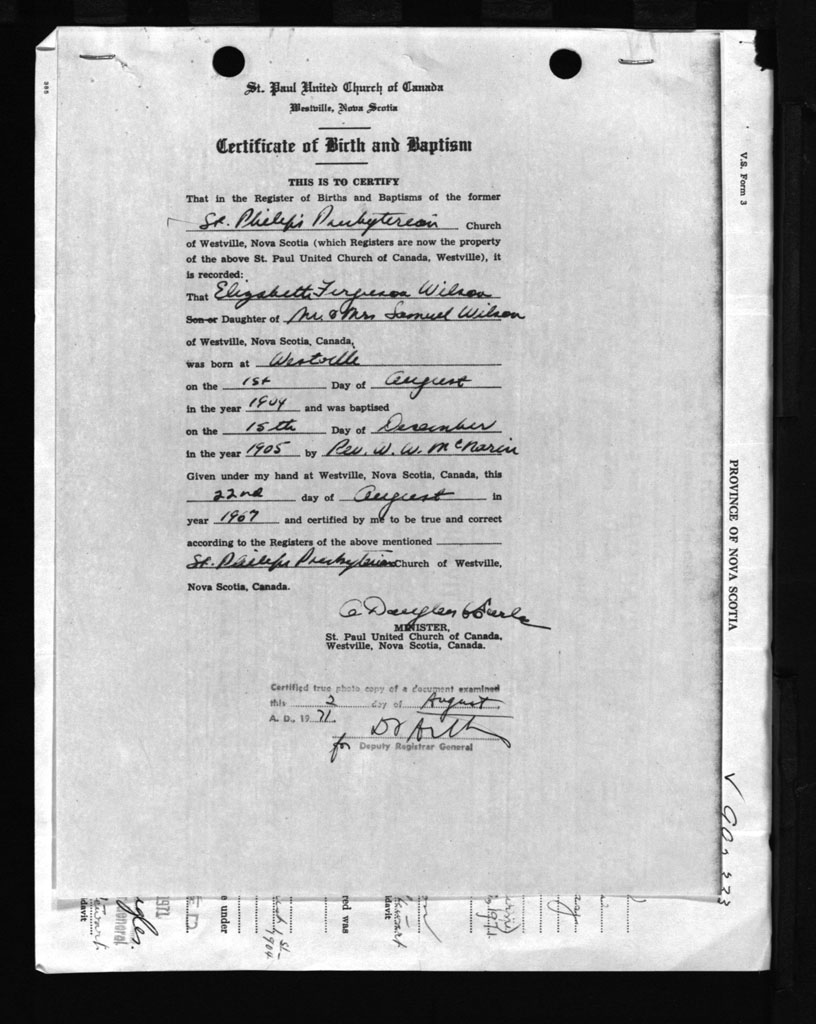 St. Paul United Church of Canada
Westville, Nova Scotia
Certificate of Birth and Baptism
THIS IS TO CERTIFY
That in the Register of Births and Baptisms of the former
St. Philip's Presbyterian Church
of Westville, Nova Scotia (which Registers are now the property
of the above St. Paul United Church of Canada, Westville), it
is recorded:
That Elizabeth Ferguson Wilson
Son or Daughter of Mr. & Mrs Samuel Wilson
of Westville, Nova Scotia, Canada,
was born at Westville
on the 1st Day of August
in the year 1904 and was baptised
on the 15th Day of December
in the year 1905 by Rev. W. W. McNairin
Given under my hand at Westville, Nova Scotia, Canada, this
22nd day of August in
year 1967 and certified by me to be true and correct
according to the Registers of the above mentioned
St. Philips Presbyterian Church of Westville,
Nova Scotia, Canada.
Douglas
MINISTER,
St. Paul United Church of Canada,
Westville, Nova Scotia, Canada.
Certified true photo copy of a document examined
this 2 day of August
A. D., 19 71.
for Deputy Registrar General
V.S. Form 3
PROVINCE OF NOVA SCOTIA
1971
General
e under
1904
red was
idavit
1971
idavit